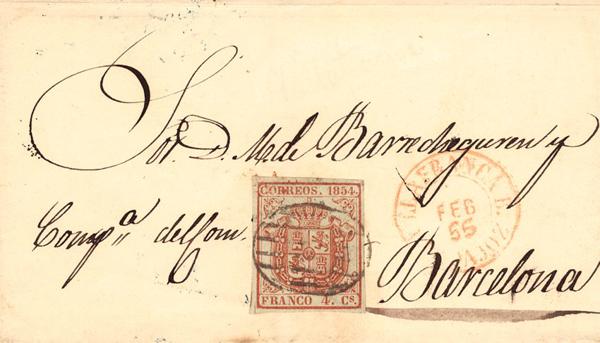 Sor. D. M. de Barrecheguren y
Comp.ª del Com.
Barcelona
CORREOS. 1854.
FRANCO 4. Cs.
FEB
55